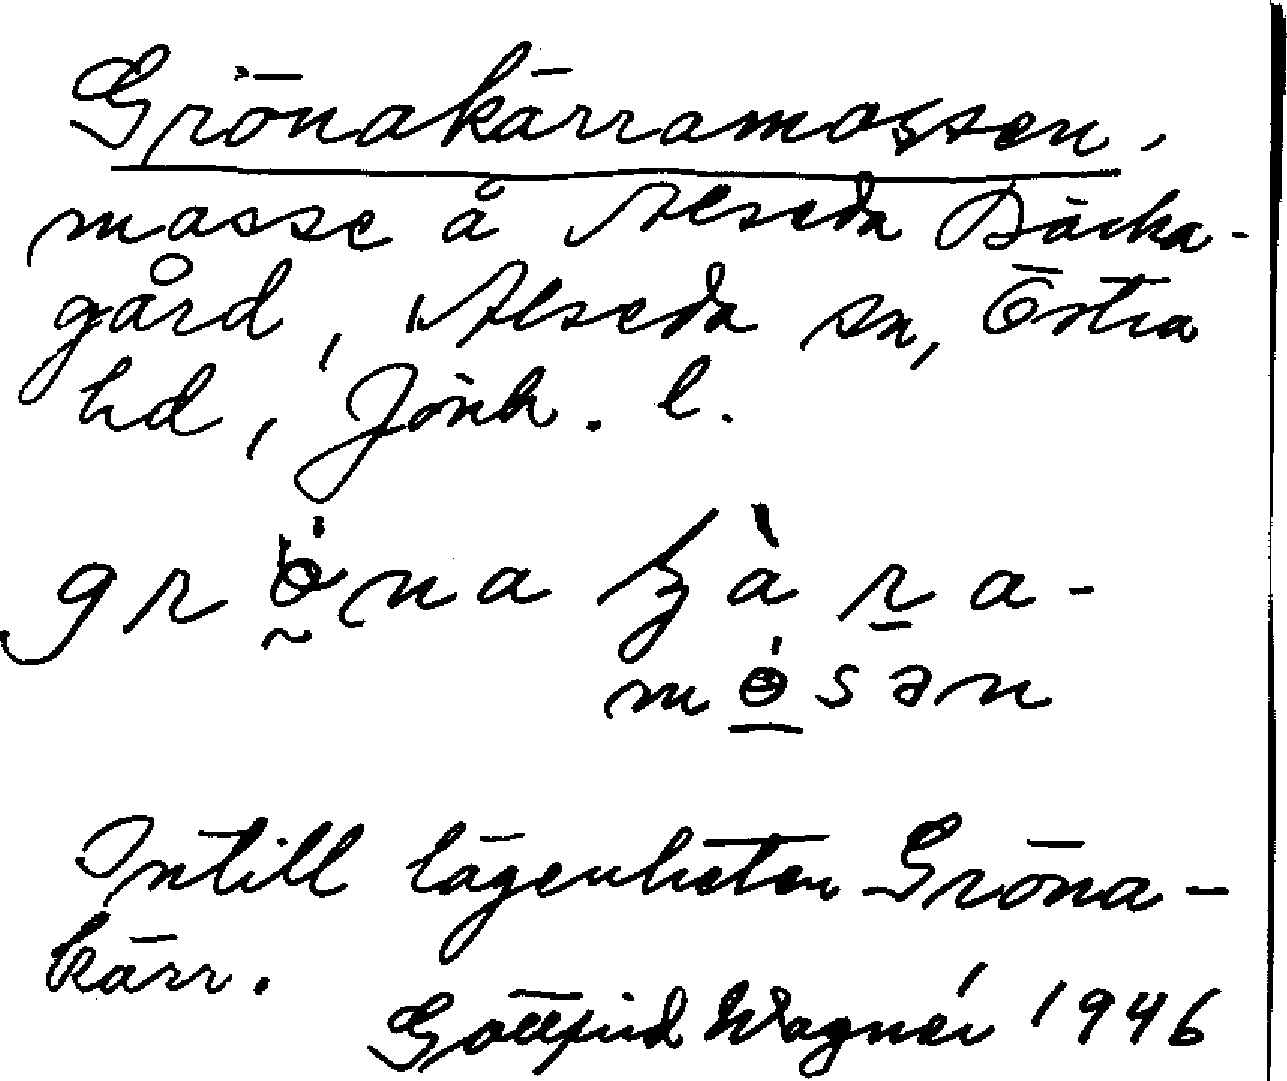 Grönakärramossen.
mosse å Alseda Backa-
gård, Alseda sn, Östra
hd, Jönk. l.
intill lägenheten Gröna-
kärr.
Gottfrid Wagnér 1946